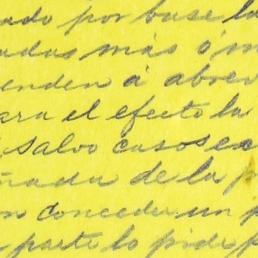 ado por base la
adas más ó m
enden á abrev
ara el efecto la
salvo casos ex
ñada de la p
n conceder un p
parte lo pide p